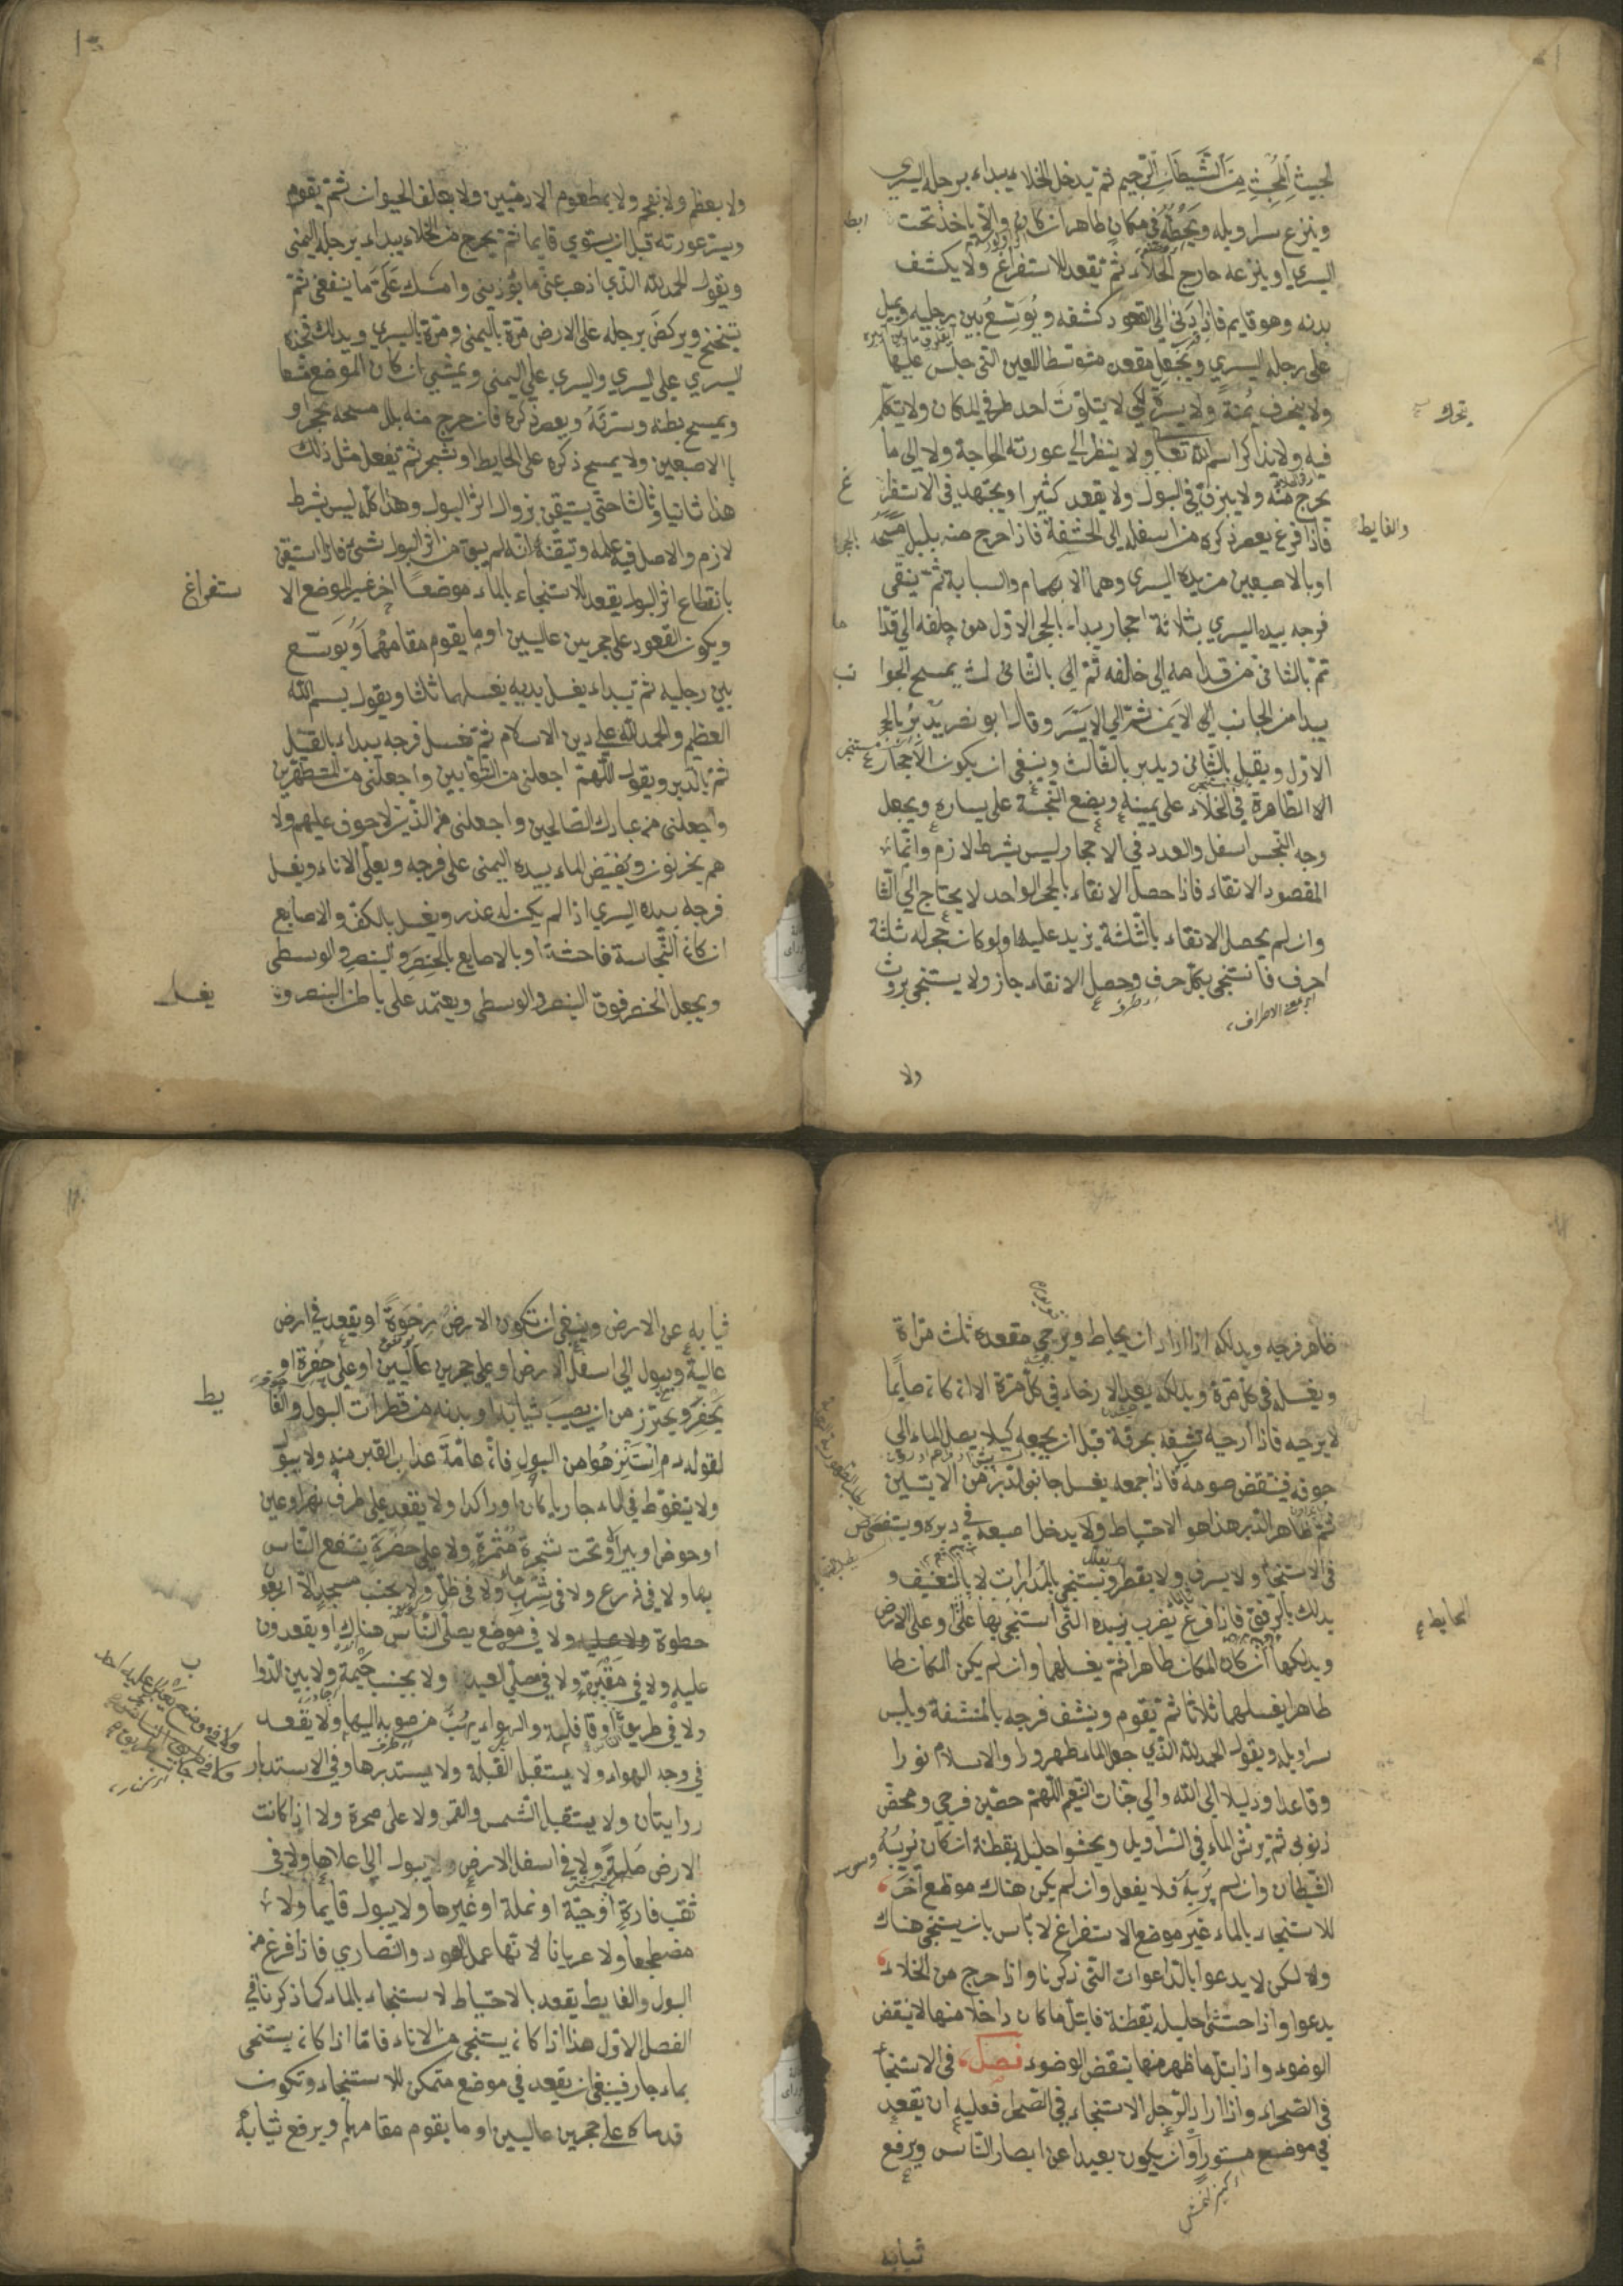 الخبيث المخبث من الشيطان الرجيم ثم يدخل الخلاء يبداء برجله اليسري
وينزع سراويله ويحطه في مكان طاهر ان كان والا ياخذ تحت ابطه
اليسري او ينزعه خارج الخلاء ثم تقعد للاستفراغ ولا يكشف
بدنه وهو قايم فاذا دنى الي القعود كشفه ويوسع بين رجليه ويميل
على رجله اليسري ويجعل مقعده متوسطا للعين التى جلس عليها
ولا ينحرف يمنة ولا يسرة لكي لا يتلوث احد طرفي المكان ولا يتكلم
فيه ولا يذاكر اسم الله تعا ولا ينظر الى عورته الا لحاجة ولا الى ما
يخرج منه ولا يبزق في البول ولا يقعد كثيرا ويجتهد فى الاستفراغ
فاذا فرغ يعصر ذكره من اسفله الى الحشفة فاذا خرج منه بلل مسحه
او بالاصبعين من يده اليسري وهما الابهام والسبابة ثم ينقى
فرجه بيده اليسري بثلاثة احجار يبداء بالحجر الاول من خلفه الى قدا ما
ثم بالثانى من قدامه الى خالفه ثم الى بالثالث يمسح الجوا نب
يبدا من الجانب الى الايمن ثم الى الايسر وقال ابو نصر يدبر بالحجر
الاول ويقبل بالثانى ويدبر بالثالث وينبغى ان يكون الاحجار
الاالطاهرة في الخلاء على يمينه ويضع النجسة على يساره ويجعل
وجه النجس اسفل والعدد في الاحجار ليس بشرط لازم وانما
المقصود الانقاء فاذا حصل الانقاء بالحجر الواحد لا يحتاج الي الثا
وان لم يحصل الانقاء بالثلثة يزيد عليها ولو كان حجر له ثلثة
احرف فاستنجى بكل حرف وحصل الانقاء جاز ولا يستنجى بروث
ولا
يتحرك
والغايط
ولا بعظم ولا بفحم ولا بمطعوم الادميين ولا بعلف الحيوان ثم يقوم
ويستر عورته قبل ان يستوي قايما ثم يخرج من الخلاء يبداء برجله اليمنى
ويقول الحمد لله الذي اذهب عنى ما يؤذينى وامسك على ما ينفعنى ثم
يتنحنح ويركض برجله على الارض مرة باليمنى ومرة باليسري ويدلك فخذه
ليسري على ليسري واليسري على اليمنى ويمشى ان كان الموضع متسعا
ويمسح بطنه وسرته ويعصر ذكره فان خرج منه بلل مسحه بحجر او
باالاصبعين ولا يمسح ذكره على الحايط او شجر ثم تفعل مثل ذلك
هذا ثانيا وثالثا حتى يستيقن بزوال اثر البول وهذا كله ليس بشرط
لازم والاصل فيه علمه وتيقنه انه لم يبق من اثر البول شئ فاذا استيقن
بانقطاع اثر البول يقعد للاستنجاء بالماء موضعا اخر غير الموضع الا ستفراغ
ويكون القعود على حجرين عاليين او ما يقوم مقامهما ويوسع
بين رجليه ثم يبداء يغسل يديه يغسلهما ثلثا ويقول بسم الله
العظيم والحمد لله على دين الاسلام ثم تغسل فرجه يبداء بالقبل
ثم بالدبر ويقول اللهم اجعلنى من التوابين واجعلنى من المتطهرين
واجعلنى من عبادك الصالحين واجعلنى من الذين لا خوف عليهم ولا
هم يحزنون ويفيض الماء بيده اليمنى على فرجه ويعلى الاناء ويغسل
فرجه بيده اليسري اذا لم يكن له عذر ويغسل بالكف والاصابع
ان كانت النجاسة فاحشة او بالاصابع بالخنصر والبنصر والوسطى
ويجعل الخنصر فوق البنصر والوسطى ويعتمد على باطن البنصر و يغسل
ظاهر فرجه ويدلكه اذا اراد ان يحاط ويرخي مقعده ثلث مراة
ويغسله في كل مرة ويدلكه بعد الارخاء في كل مرة الا ان كان صايما
لا يرخيه فاذا ارخيه تنشفه بخرقة قبل ان يجمعه كيلا يصل الماء الى
جوفه فينقض صومه فاذا جمعه يغسل جانبى الدبر من الاليتين
ثم ظاهر الدبر هذا هو الاحتياط ولا يدخل اصبعه في دبره ويتفحص
فى الاستنجاء ولا يسرف ولا يقطر ويستنجى بالمدارات لا بالتعنيف و
يدلك بالرفق فاذا فرغ يضرب يده التى استنجى بها على الحايط او على الارض
ويدلكها ان كان المكان طاهرا ثم يغسلهما وان لم يكن المكان طا
طاهرا يغسلهما ثلاثا ثم يقوم وينشف فرجه بالمنشفة ويلبس
سراويله ويقول الحمد لله الذي جعل الماء طهورا والاسلام نورا
وقاعدا ودليلا الى الله والى جنات النعيم اللهم حصن فرجي ومحض
ذنوبى ثم يرش الماء في السراويل ويحشوا حليله بقطنة ان كان يريبه
الشيطان وان لم يربه فلا يفعل وان لم يكن هناك موضع اخر
للاستنجاء بالماء غير موضع الاستفراغ لا باس بان يستنجى هناك
ولا لكن لا يدعوا بالداعوات التى ذكرنا واذا خرج من الخلاء
يدعوا واذا حتشى احليله بقطنة فابتل ما كان داخلا منها لا ينقض
الوضوء واذا ابتل ما ظهر منها ينقض الوضوء فصل في الاستنجا
في الصحراء واذا اراد الرجل الاستنجاء في الصحرا فعليه ان يقعد
في موضع مستورا وان يكون بعيدا عن ابصار الناس ويرفع
ثيابه
ثيابه عن الارض وينبغى ان تكون الارض رخوة او يقعد في ارض
عالية ويبول الى اسفل الارض او على حجرين عاليين او على حفرة او
يحفر ويحترز من ان يصيب ثيابه او بدنه من قطرات البول والغا يط
لقوله عم استنزهوا من البول فان عامة عذاب القبر منه ولا يبول
ولا يتغوط في الماء جاريا كان او راكدا ولا يقعد على طرف نهر او عين
او حوض او بير او تحت شجرة مثمرة ولا على خضرة ينتفع الناس
بها ولا في زرع ولا في شرب ولا فى ظل ولا بجنب مسجد الا اربعون
خطوة ولا في موضع يصلى الناس هناك او يقعدون
عليه ولا في مقبرة ولا في مصلى العيد ولا بجنب خيمة ولا بين الدوا ب
ولا في طريق او قافلة والهواء يهب من صوبه اليها ولا يقعد
في وجه الهواء ولا يستقبل القبلة ولا يستدبرها وفي الاستدبار
روايتان ولا يستقبل الشمس والقمر ولا على صخرة ولا اذا كانت
الارض صلبة ولا في اسفل الارض ويبول الى اعلاها ولا فى
ثقب فارة او حية او نملة او غيرها ولا يبول قايما ولا
مضطجعا ولا عريانا لانها عمل اليهود والنصاري فاذا فرغ من
البول والغايط يقعد بالاحتياط لاستنجاء بالماء كما ذكرنا في
الفصل الاول هذا اذا كان يستنجى من الاناء فاما اذا كان يستنجى
بماء جار فينبغى ان يقعد في موضع متمكن للاستنجاء وتكون
قدماه على حجرين عاليين او ما يقوم مقامهما ويرفع ثيابه